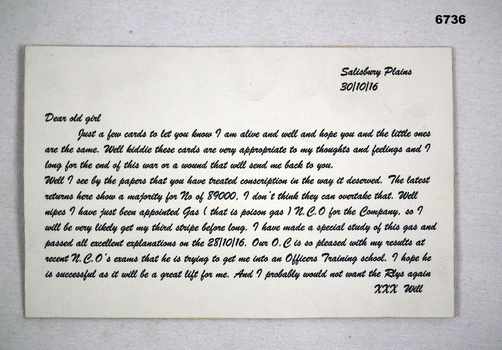 6736
Salisbury Plains
30/10/16
Dear old girl
Just a few cards to let you know I am alive and well and hope you and the little ones
are the same. Well kiddie these cards are very appropriate to my thoughts and feelings and I
long for the end of this war or a wound that will send me back to you.
Well I see by the papers that you have treated conscription in the way it deserved. The latest
returns here show a majority for No of 89000. I don't think they can overtake that. Well
nipes I have just been appointed Gas ( that is poison gas ) N.C.O for the Company, so I
will be very likely get my third stripe before long. I have made a special study of this gas and
passed all excellent explanations on the 28/10/16. Our O.C is so pleased with my results at
recent N.C.O's exams that he is trying to get me into an Officers Training school. I hope he
is successful as it will be a great life for me. And I probably would not want the Rlys again
XXX Will